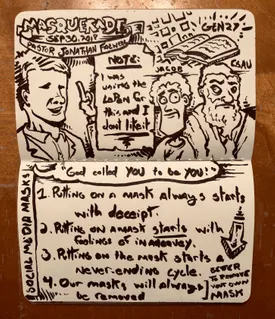 MASQUERADE
SEP 30, 2018
PASTOR JONATHAN
GEN 27
NOTE:
I was
using the
for
this and I
don't like it
JACOB
ESAU
"God called YOU to be YOU!"
SOCIAL MEDIA MASKS
1. Putting on a mask always starts
with deceipt.
2. Putting on a mask starts with
feelings of inadequacy.
3. Putting on the mask starts a
never-ending cycle.
4. Our masks will always
be removed
BETTER
TO REMOVE
YOUR OWN
MASK